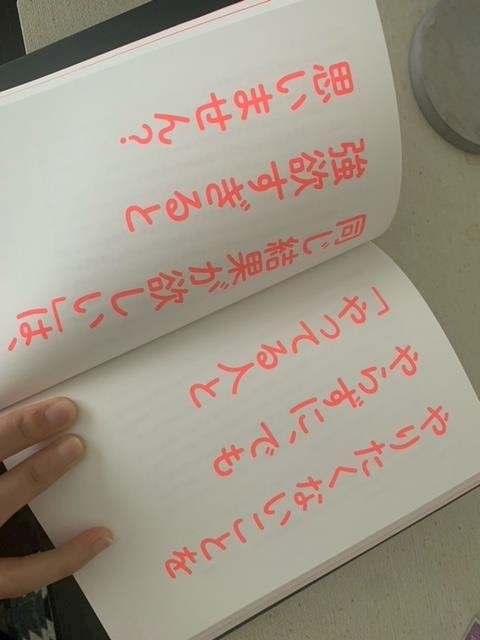 やりたくないことを
やらずに、でも
「やってる人と
同じ結果が欲しい」は、
強欲すぎると
思いません?